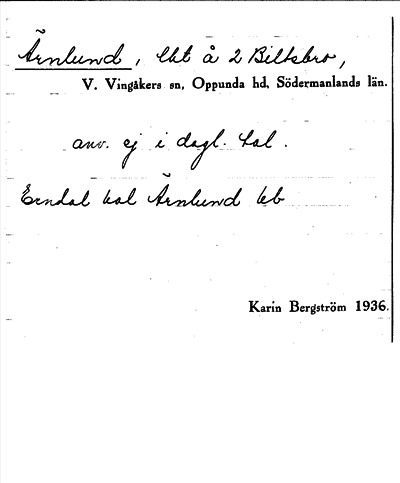 Ärnlund, lht å 2 Biltsbro,
V. Vingåkers sn, Oppunda hd, Södermanlands län.
anv. ej i dagl. tal.
Ärnlund
Karin Bergström 1936.